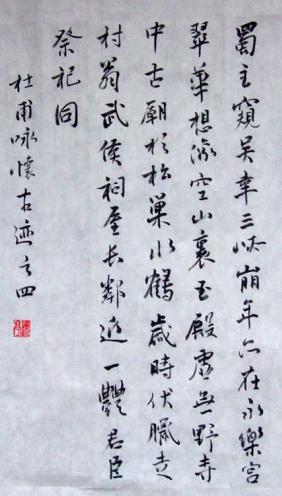 蜀主窺吳幸三峽崩年亦在永樂宮
翠華想像空山裏玉殿虛無野寺
中古廟杉松巢水鶴歲時伏臘走
村翁武侯祠屋長鄰近一體君臣
祭祀同
杜甫咏懷古迹之四